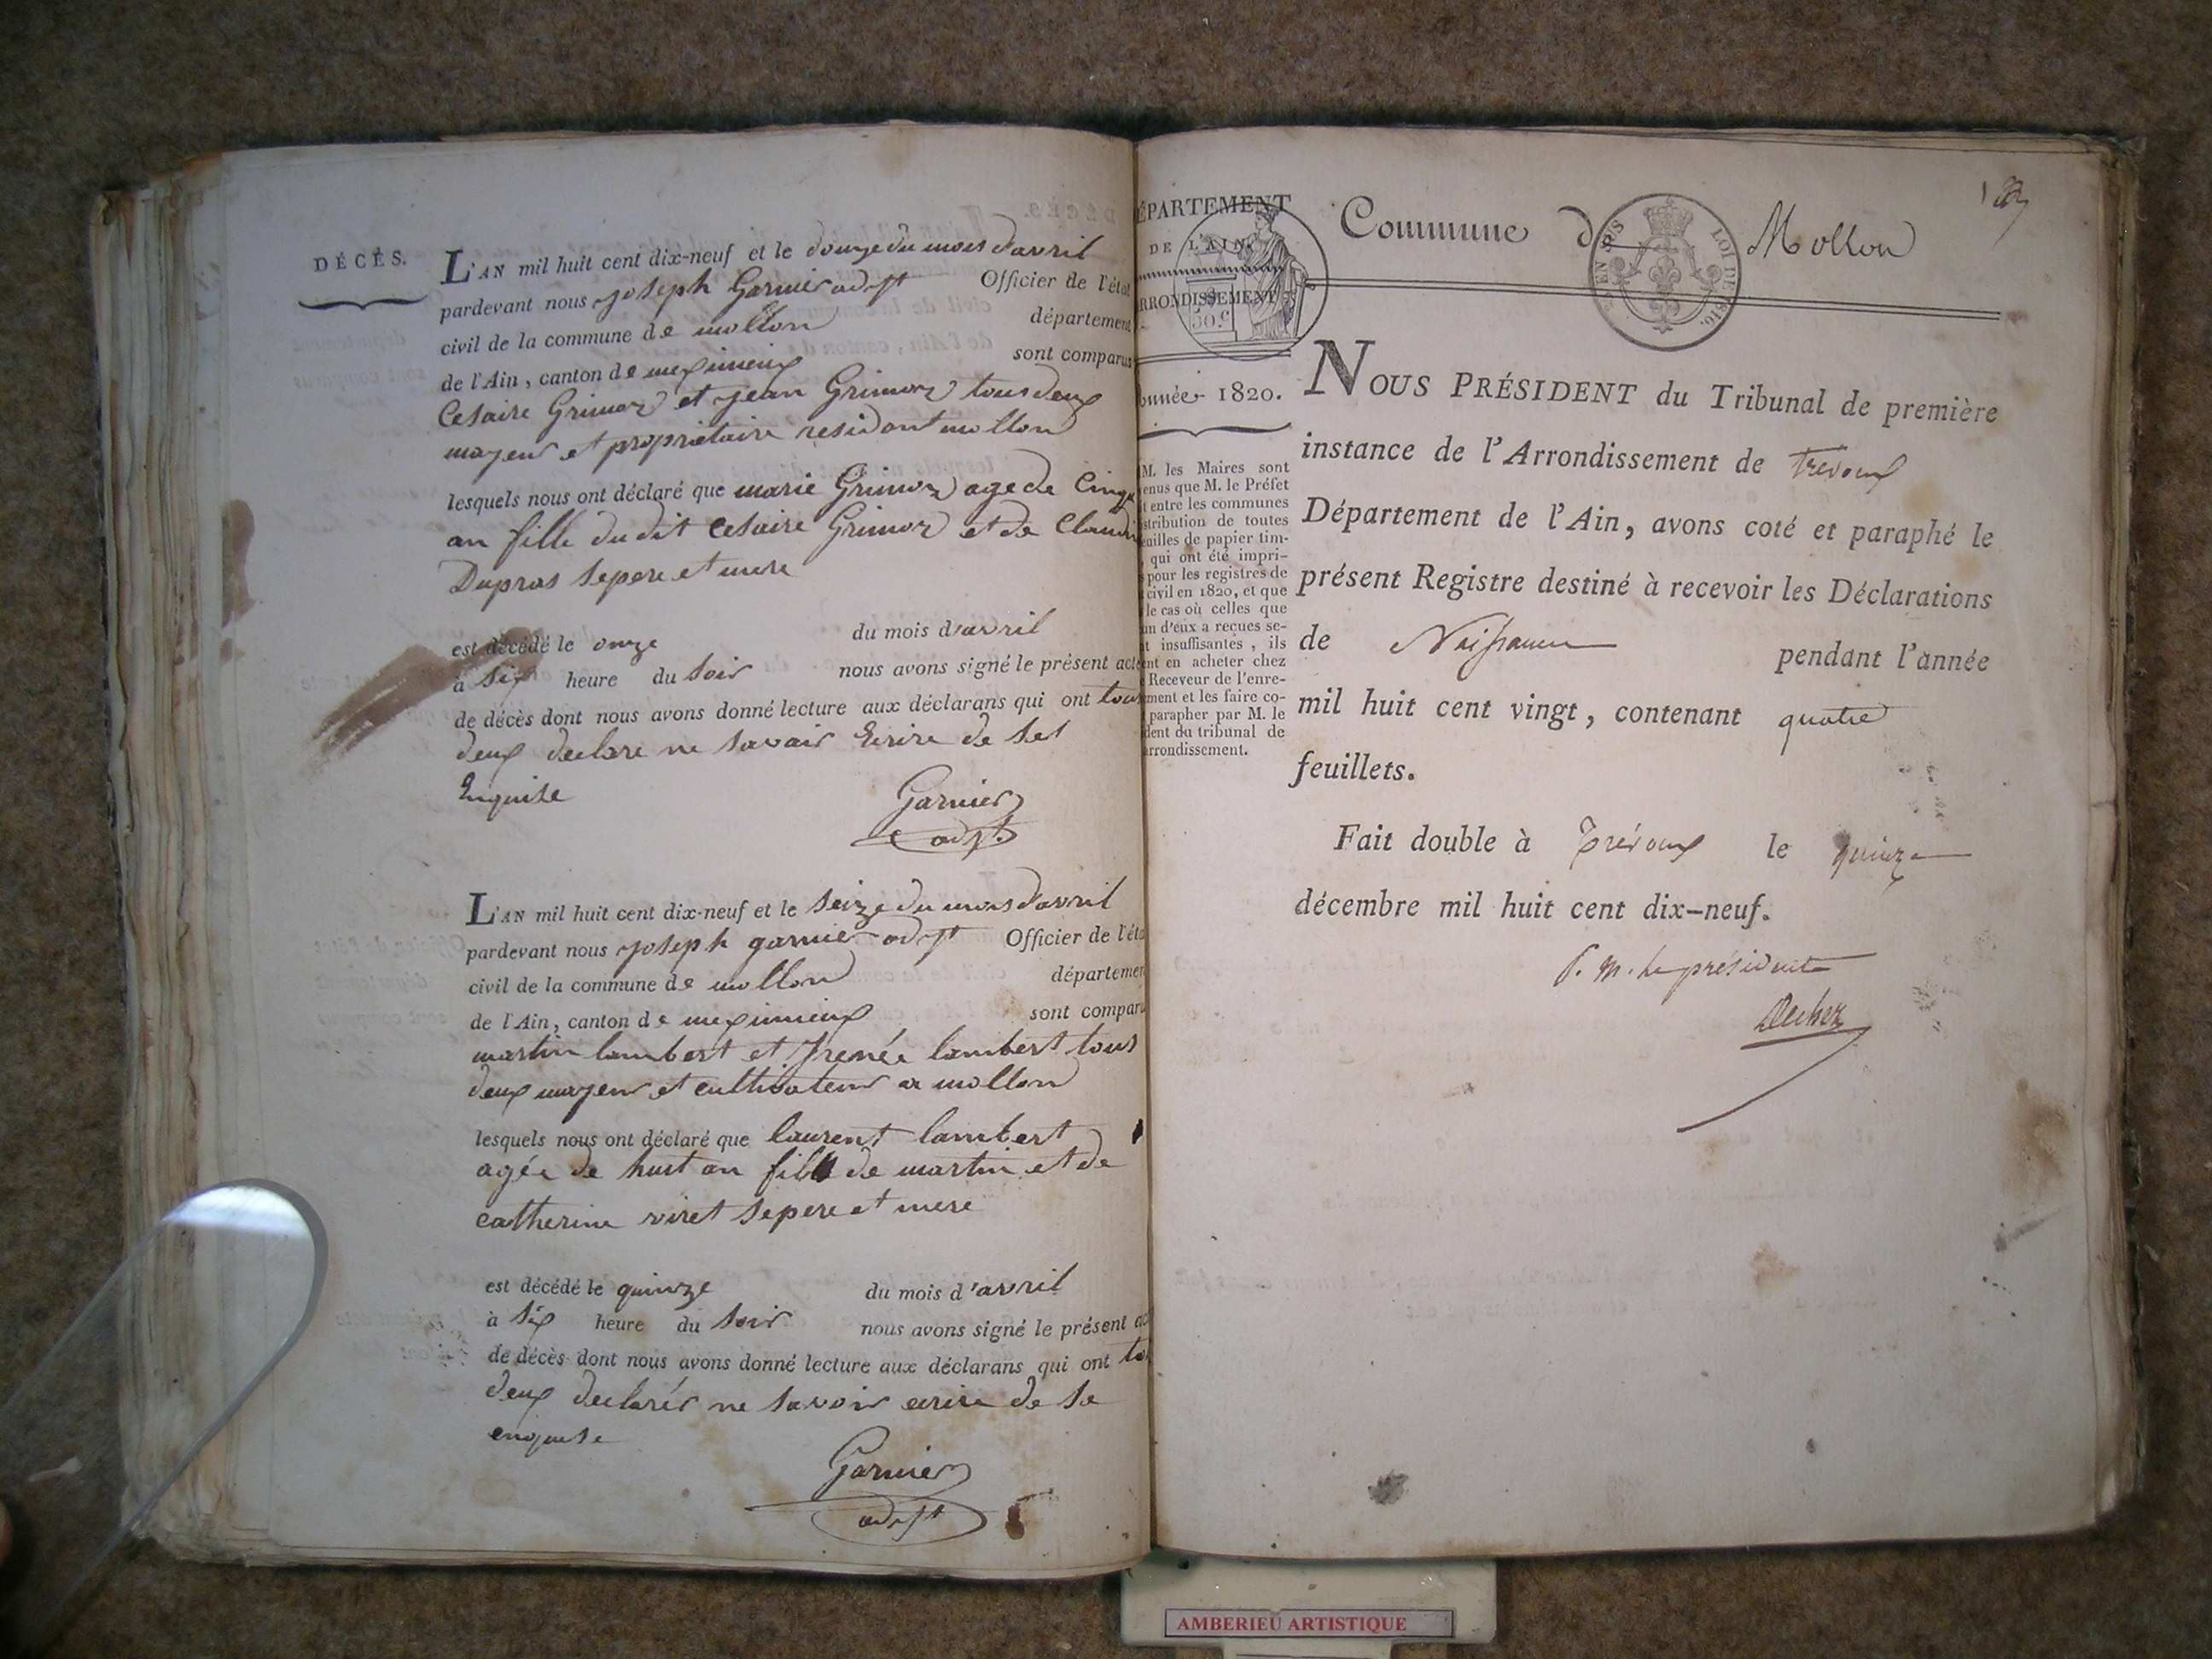 DÉCÈS.
L'AN mil huit cent dix-neuf et le douze du mois d'avril
pardevant nous joseph Garnier adjt Officier de l'état
civil de la commune de mollon département
de l'Ain, canton de meximieux sont comparus
Cesaire Grimoz et jean Grimoz tous deux
majeur et propriétaire residant mollon
lesquels nous ont déclaré que marie Grimoz age de Cinq
an fille du dit Cesaire Grimoz et de Claudi
Dupras se pere et mere
est décédé le onze du mois d'avril
à six heure du soir nous avons signé le présent acte
de décès dont nous avons donné lecture aux déclarans qui ont tous
deux declare ne savoir Ecrire de ses
Enquise
Garnier
adjt.
L'AN mil huit cent dix-neuf et le seize du mois d'avril
pardevant nous joseph garnier adjt Officier de l'éta
civil de la commune de mollon départemen
de l'Ain, canton de meximieux sont comparu
martin lambert et Irenée lambert tous
deux majeur et cultivateur a mollon
lesquels nous ont déclaré que laurent lambert
agée de huit an fils de martin et de
catherine viret se pere et mere
est décédé le quinze du mois d'avril
à six heure du soir nous avons signé le présent ac
de décès dont nous avons donné lecture aux déclarans qui ont to
deux declarér ne savoir ecrire de se
enquise
Garnier
adjt
ÉPARTEMENT
DE L'AIN.
RRONDISSEMENT
50.c
nnée 1820.
M. les Maires sont
enus que M. le Préfet
t entre les communes
stribution de toutes
euilles de papier tim-
qui ont été impri-
pour les registres de
civil en 1820, et que
le cas où celles que
un d'eux a reçues se-
t insuffisantes, ils
nt en acheter chez
Receveur de l'enre-
ment et les faire co-
parapher par M. le
dent du tribunal de
rrondissement.
Commune de Mollon
EN SUS
LOI DE 1816.
NOUS PRÉSIDENT du Tribunal de première
instance de l'Arrondissement de Trevoux
Département de l'Ain, avons coté et paraphé le
présent Registre destiné à recevoir les Déclarations
de Naissance pendant l'année
mil huit cent vingt, contenant quatre
feuillets.
Fait double à Trévoux le quinze
décembre mil huit cent dix-neuf.
P. M. le président
AMBERIEU ARTISTIQUE